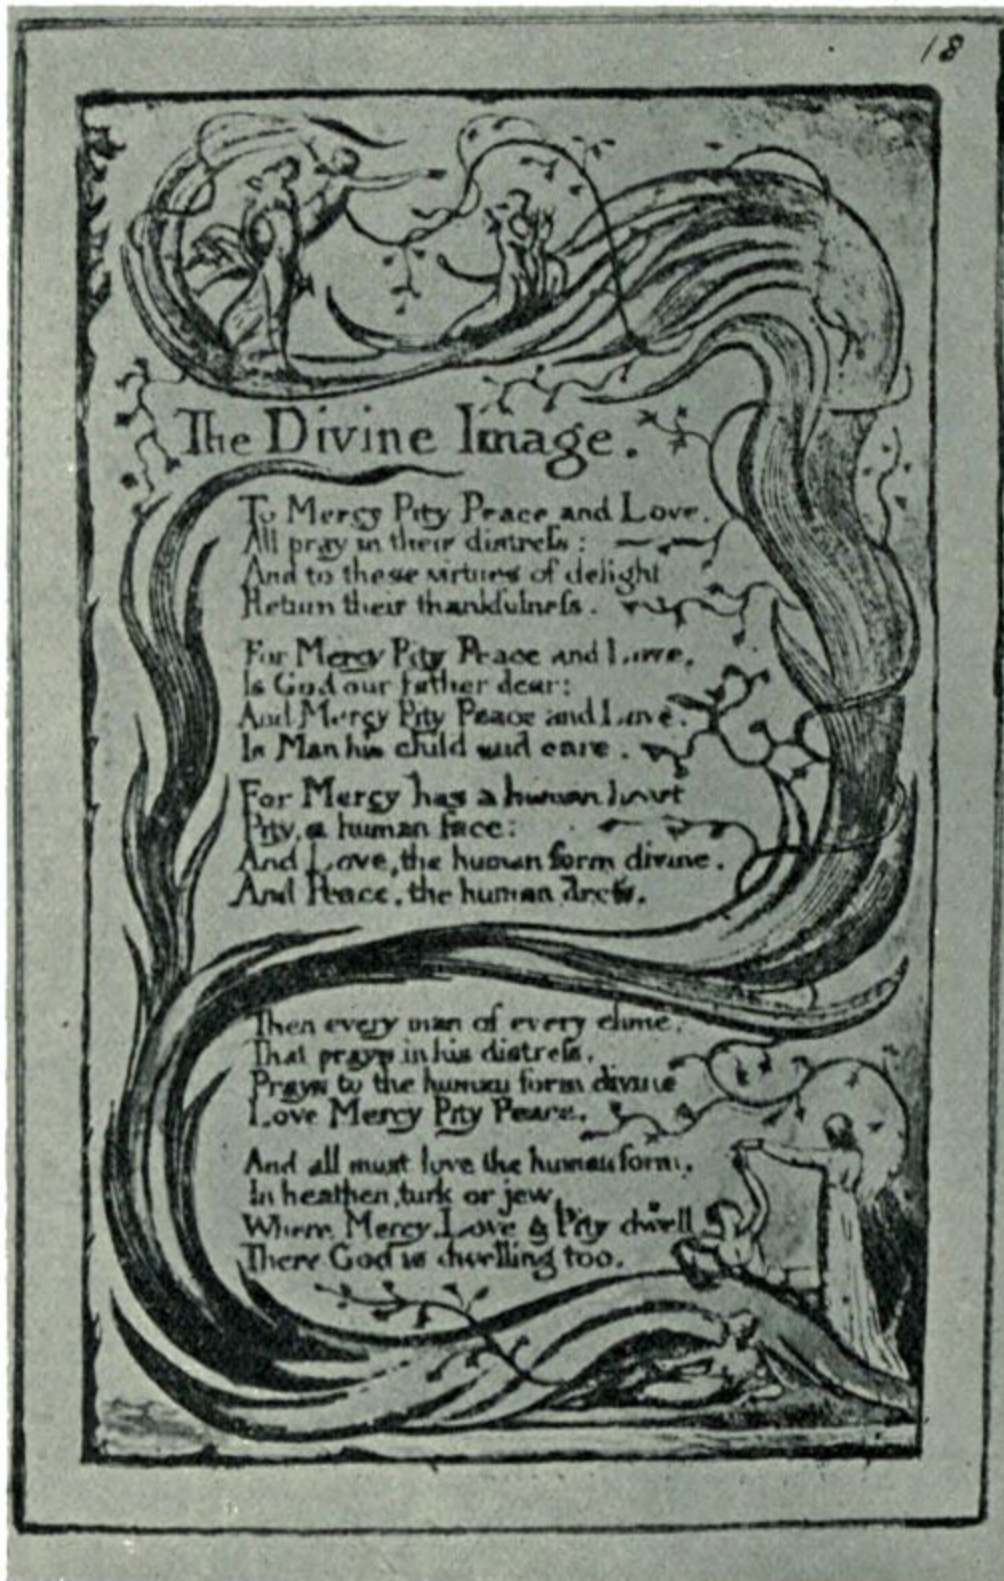 18
The Divine Image.
To Mercy Pity Peace and Love,
All pray in their distreſs:
And to these virtues of delight
Return their thankfulneſs.
For Mercy Pity Peace and Love,
Is God our father dear:
And Mercy Pity Peace and Love,
Is Man his child and care.
For Mercy has a human heart
Pity, a human face:
And Love, the human form divine.
And Peace, the human dreſs.
Then every man of every clime,
That prays in his distreſs,
Prays to the human form divine
Love Mercy Pity Peace.
And all must love the human form,
In heathen, turk or jew.
Where Mercy, Love & Pity dwell
There God is dwelling too.